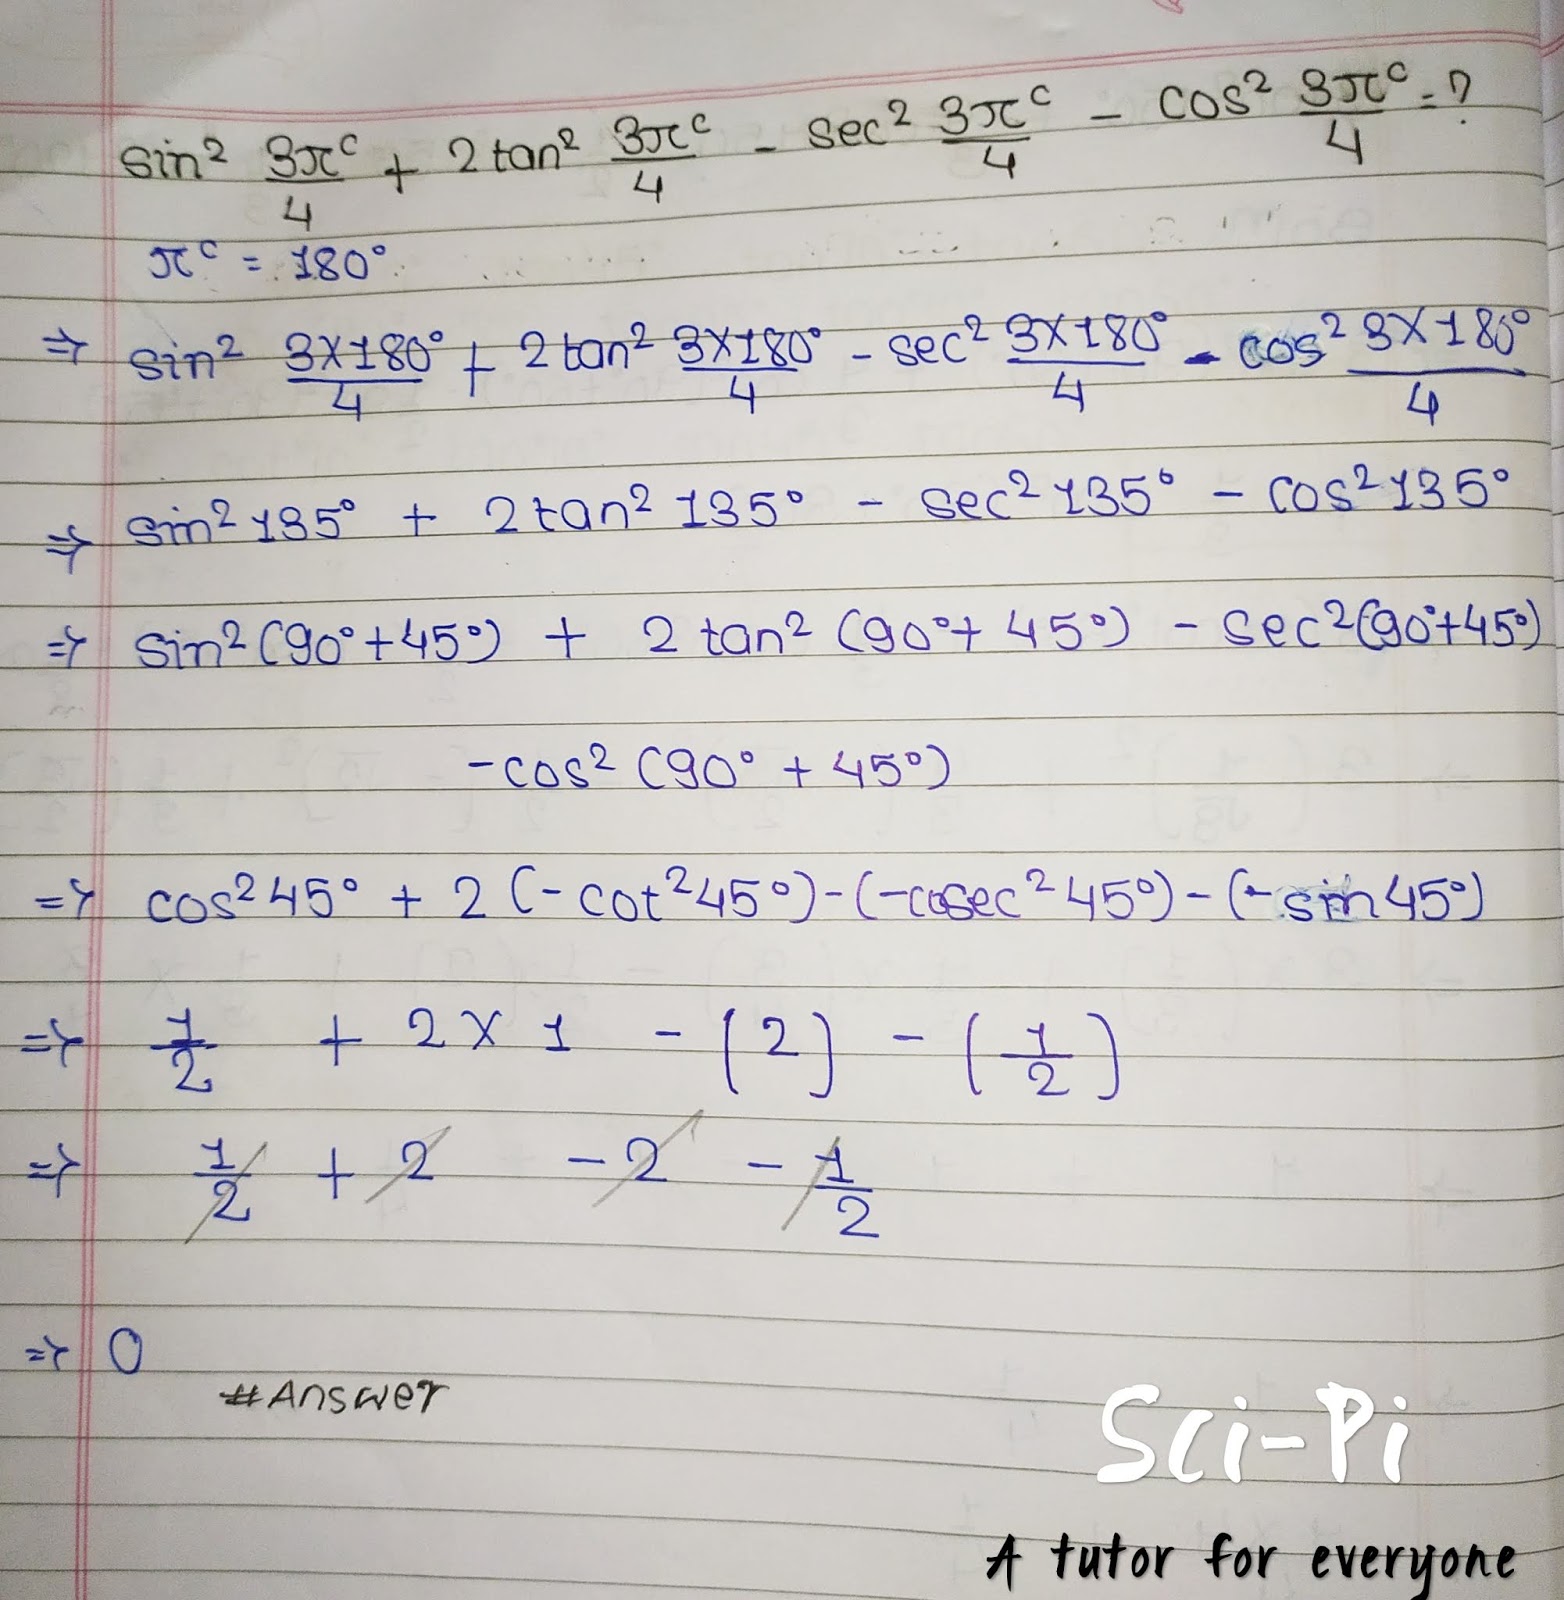 sin² 3πᶜ/4 + 2 tan² 3πᶜ/4 - sec² 3πᶜ/4 - cos² 3πᶜ/4 = ?
πᶜ = 180°
⇒ sin² 3×180°/4 + 2 tan² 3×180°/4 - sec² 3×180°/4 - cos² 3×180°/4
⇒ sin² 135° + 2 tan² 135° - sec² 135° - cos² 135°
⇒ sin² (90° + 45°) + 2 tan² (90° + 45°) - sec² (90° + 45°)
- cos² (90° + 45°)
⇒ cos² 45° + 2 (- cot² 45°) - (- cosec² 45°) - (- sin 45°)
⇒ 1/2 + 2 × 1 - (2) - (1/2)
⇒ 1/2 + 2 - 2 - 1/2
⇒ 0
#Answer
Sci-Pi
A tutor for everyone